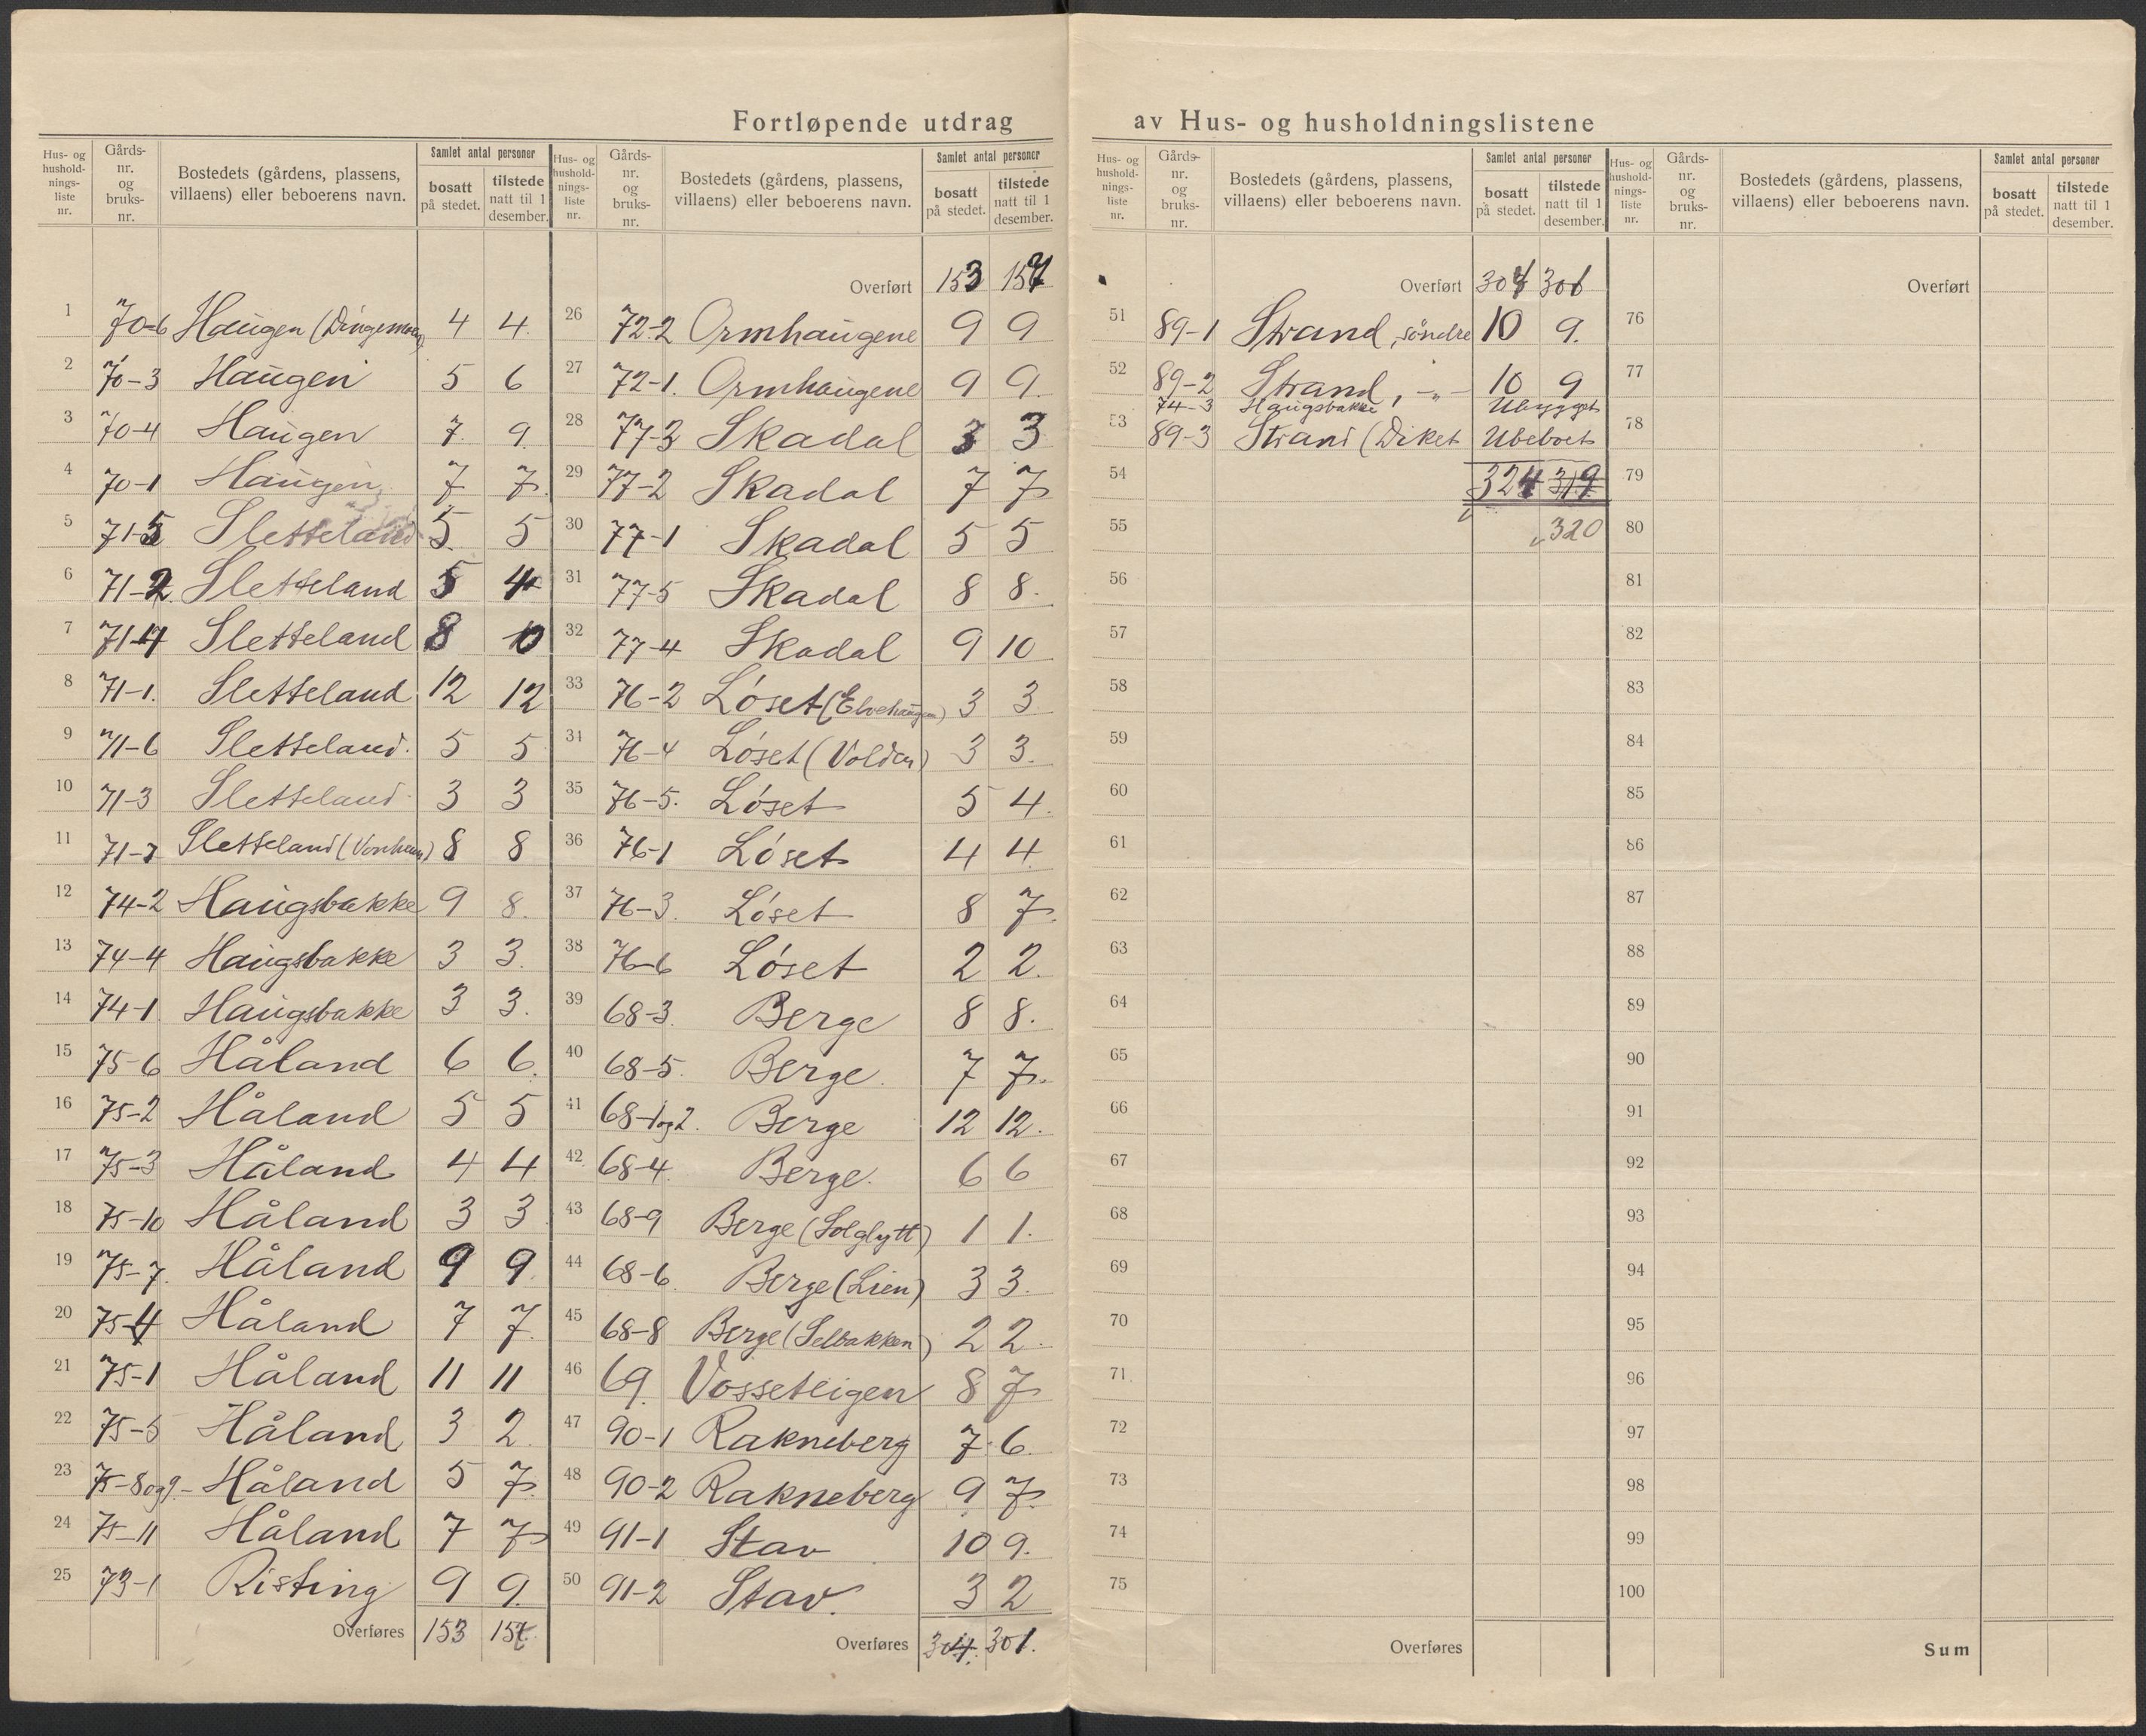 Fortløpende utdrag av Hus- og husholdningslistene
Hus- og hushold-nings-liste nr. | Gårds-nr. og bruks-nr. | Bostedets (gårdens, plassens, villaens) eller beboerens navn. | Samlet antal personer | bosatt på stedet. | tilstede natt til 1 desember.
1 70-6 Haugen 4 4
2 70-3 Haugen 5 6
3 70-4 Haugen 7 9
4 70-1 Haugen 7 7
5 71-5 Sletteland 5 5
6 71-2 Sletteland 5 4
7 71-4 Sletteland 8 10
8 71-1. Sletteland 12 12
9 71-6 Sletteland. 5 5
10 71-3 Sletteland 3 3
11 Sletteland (Vonheim) 8 8
12 74-2 Haugsbakke 9 8.
13 74-4 Haugsbakke 3 3.
14 74-1 Haugsbakke 3 3.
15 75-6 Håland 6 6.
16 75-2 Håland 5 5
17 75-3 Håland 4 4
18 75-10 Håland 3 3
19 75-7. Håland 9 9
20 75-4 Håland 7 7.
21 75-1 Håland 11 11
22 75-5 Håland 3 2
23 75-8og9.- Håland 5 7.
24 75-11 Håland 7 7
25 73-1 Risting 9 9
Overføres 153
Hus- og hushold-nings-liste nr. | Gårds-nr. og bruks-nr. | Bostedets (gårdens, plassens, villaens) eller beboerens navn. | Samlet antal personer | bosatt på stedet. | tilstede natt til 1 desember.
Overført 153
26 72-2 Ormhaugene 9 9
27 72-1. Ormhaugene 9 9.
28 77-3 Skadal 3 3
29 77-2 Skadal 7 7
30 77-1 Skadal 5 5
31 77-5 Skadal 8 8.
32 77-4 Skadal 9 10
33 76-2 Løset (Elvehaugen) 3 3
34 76-4 Løset (Volden) 3 3.
35 76-5. Løset 5 4.
36 76-1 Løset 4 4
37 76-3. Løset 8 7.
38 76-6 Løset 2 2.
39 68-3. Berge 8 8.
40 68-5. Berge. 7 7.
41 68-1og2. Berge 12 12.
42 68-4. Berge. 6 6
43 68-9 Berge (Solglytt) 1 1.
44 68-6. Berge (Lien) 3 3.
45 68-8 Berge (Selbakken) 2 2.
46 69. Vosseteigen 8 7
47 90-1 Rakneberg 7 6.
48 90-2 Rakneberg 9 7.
49 91-1 Stav 10 9.
50 91-2 Stav. 3 2
Overføres 304. 301.
Hus- og hushold-nings-liste nr. | Gårds-nr. og bruks-nr. | Bostedets (gårdens, plassens, villaens) eller beboerens navn. | Samlet antal personer | bosatt på stedet. | tilstede natt til 1 desember.
Overført 304 301
51 89-1 Strand, søndre 10 9.
52 89-2 Strand, -"- 10 9
74-3 Haugsbakke Ubygget
53 89-3 Strand (Diket Ubeboet
54 324 319
55 320
56
57
58
59
60
61
62
63
64
65
66
67
68
69
70
71
72
73
74
75
Overføres
Hus- og hushold-nings-liste nr. | Gårds-nr. og bruks-nr. | Bostedets (gårdens, plassens, villaens) eller beboerens navn. | Samlet antal personer | bosatt på stedet. | tilstede natt til 1 desember.
Overført
76
77
78
79
80
81
82
83
84
85
86
87
88
89
90
91
92
93
94
95
96
97
98
99
100
Sum